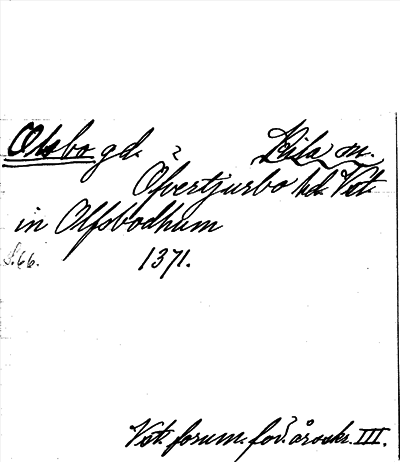 Olsbo gd. ? Lila sn.
Öfvertjurbo hd. Vst.
in Olfsbodhum
S. 66. 1371.
Vst. fornm. för. årsskr. III.